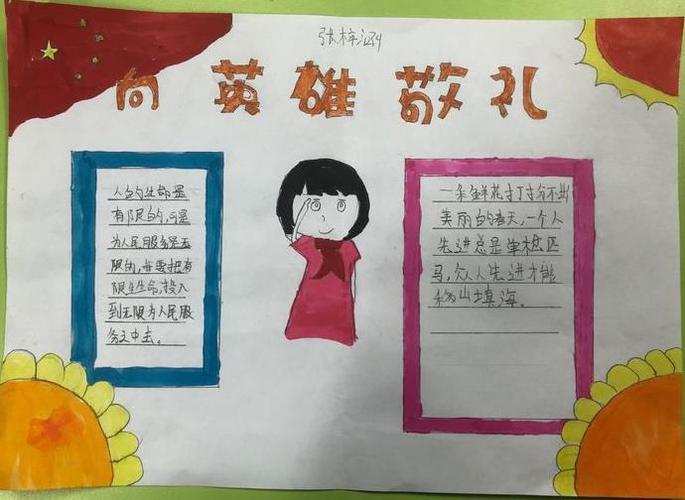 张梓涵
向英雄敬礼
人的生命是
有限的,可是
为人民服务是无
限的,我要把有
限生命,投入
到无限为人民服
务之中去。
一朵鲜花打扮不出
美丽的春天,一个人
先进总是单枪匹
马,众人先进才能
移山填海。